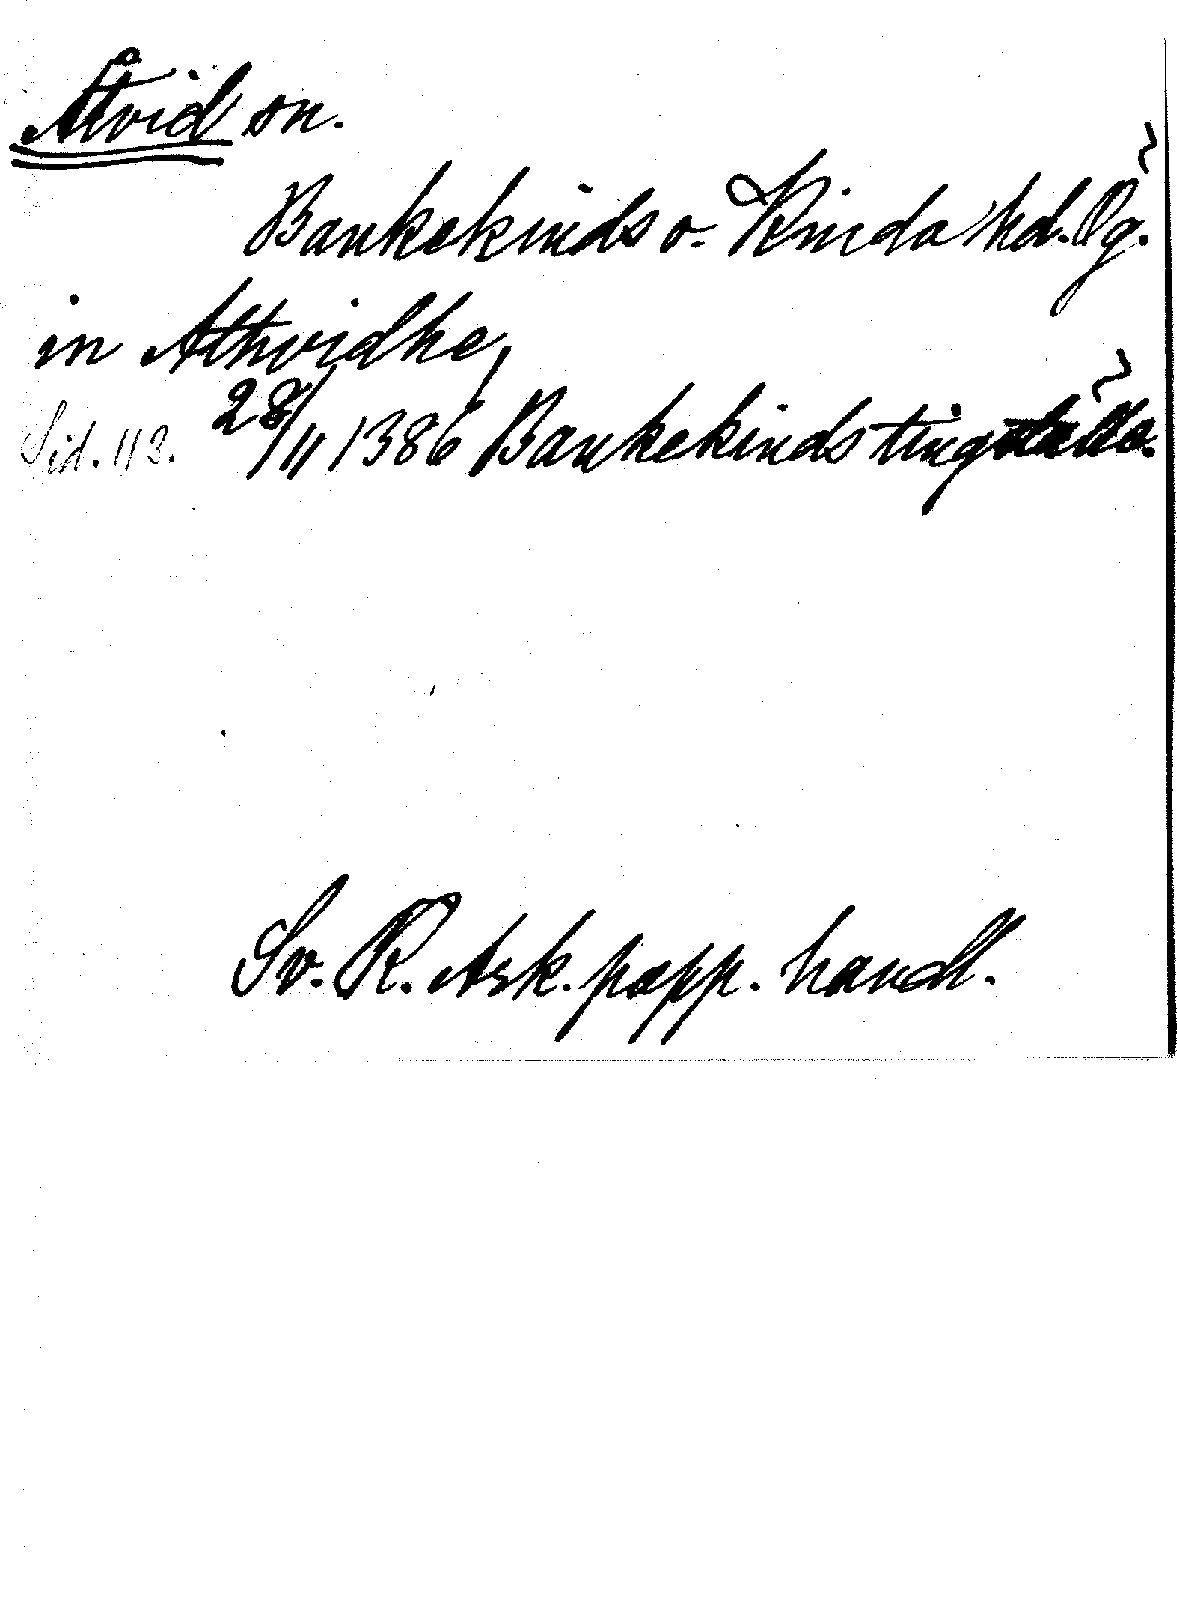 Åtvid sn.
Bankekinds o. Kinda hd. Ög.
in Athvidhe,
Sid. 113. 28/11 1386 Bankekinds tingställe.
Sv. R. Ark. papp. handl.